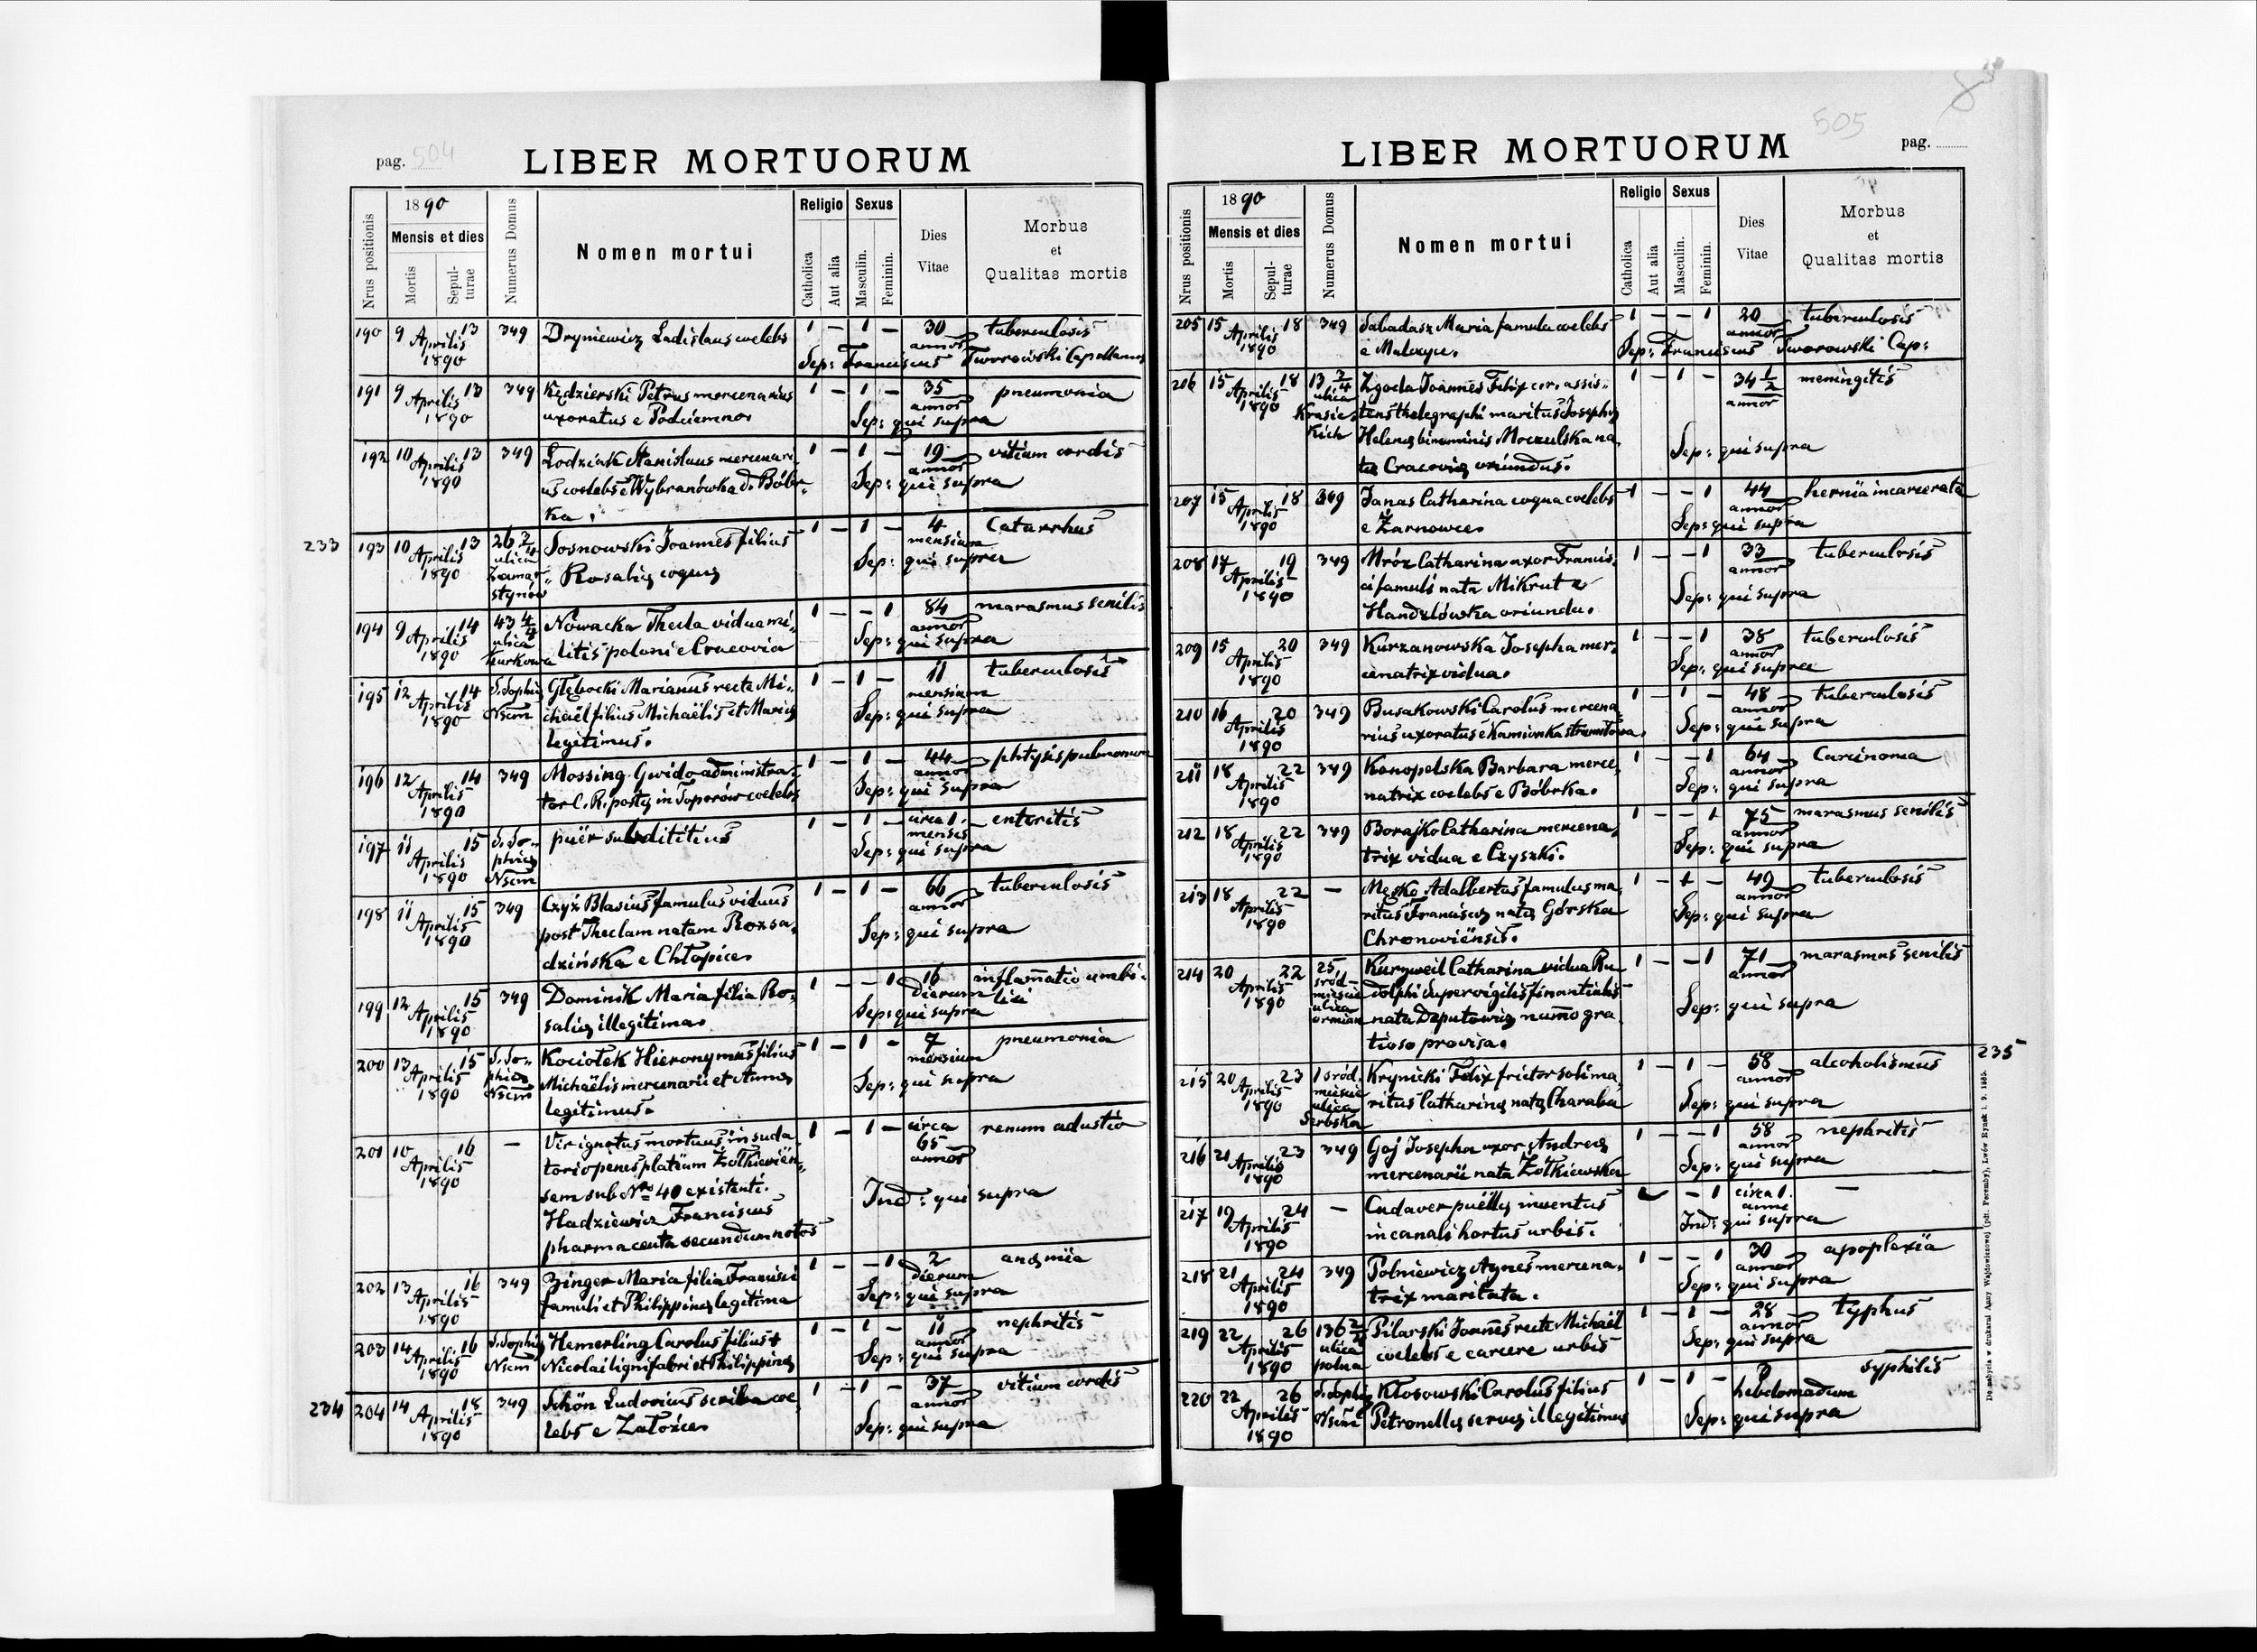 pag. 504
LIBER MORTUORUM
Nrus positionis
1890
Mensis et dies
Mortis
Sepulturae
Numerus Domus
Nomen mortui
Religio
Catholica
Aut alia
Sexus
Masculin.
Feminin.
Dies
Vitae
Morbus
et
Qualitas mortis
190 9 Aprilis 13 349 Dryniewicz Ladislaus coelebs 1 — 1 — 30 tuberculosis
1890 annor
Sep: Franciscus Tworowski Capellanus
191 9 Aprilis 13 349 Kędzierski Petrus mercenarius 1 — 1 — 35 pneumonia
1890 uxoratus e Podciemno annor
Sep: qui supra
192 10 Aprilis 13 349 Łodziak Stanislaus mercenari- 1 — 1 — 19 vitium cordis
1890 us coelebs e Wybranówka d. Bóbr- annor
ka. Sep: qui supra
233 193 10 Aprilis 13 26 2/4 Sosnowski Joannes filius 1 — 1 — 4 Catarrhus
1890 ulica Rosalię coquę mensium
Zamar- Sep: qui supra
stynów
194 9 Aprilis 14 43 4/4 Nowacka Thecla vidua mi- 1 — — 1 84 marasmus senilis
1890 ulica litis poloni e Cracovia annor
Kurkowa Sep: qui supra
195 12 Aprilis 14 S. Sophię Głębocki Marianus recte Mi- 1 — 1 — 11 tuberculosis
1890 Nscm chaël filius Michaëlis et Marię mensium
legitimus. Sep: qui supra
196 12 Aprilis 14 349 Mossing Gwido administra- 1 — 1 — 44 phtysis pulmonum
1890 tor C. R. postę in Toporów coelebs annor
Sep: qui supra
197 11 Aprilis 15 S. So- puër subdititius 1 — 1 — circa 1. enteritis
1890 phię mensis
Nscm Sep: qui supra
198 11 Aprilis 15 349 Czyż Blasius famulus viduus 1 — 1 — 66 tuberculosis
1890 post Theclam natam Rozsa- annor
dzińska e Chłopice. Sep: qui supra
199 12 Aprilis 15 349 Dominik Maria filia Ro- 1 — — 1 16 inflamatio umbi-
1890 salię illegitima. Dierum lici
Sep: qui supra
200 13 Aprilis 15 S. So- Kociołek Hieronymus filius 1 — 1 — 7 pneumonia
1890 phię Michaëlis mercenarii et Annę mensium
Nscm legitimus. Sep: qui supra
201 10 Aprilis 16 — Vir ignotus mortuus in suda- 1 — 1 — circa renum adustio
1890 torio penes plateam Żołkievien- 65
sem sub Nro 40 existenti. annor
Hadziewicz Franciscus Ind: qui supra
pharmaceuta secundum notos
202 13 Aprilis 16 349 Zinger Maria filia Francisci 1 — — 1 2 anęmia
1890 famuli et Philippinę legitima dierum
Sep: qui supra
203 14 Aprilis 16 S. Sophię Hemerling Carolus filius + 1 — 1 — 11 nephritis
1890 Nscm Nicolai lignifabri et Philippinę annor
Sep: qui supra
234 204 14 Aprilis 18 349 Schön Ludovicus scriba coe- 1 — 1 — 37 vitium cordis
1890 lebs e Załozice annor
Sep: qui supra
505
pag.
LIBER MORTUORUM
Nrus positionis
1890
Mensis et dies
Mortis
Sepulturae
Numerus Domus
Nomen mortui
Religio
Catholica
Aut alia
Sexus
Masculin.
Feminin.
Dies
Vitae
Morbus
et
Qualitas mortis
205 15 Aprilis 18 349 Sabadasz Maria famula coelebs 1 — — 1 20 tuberculosis
1890 e Malczyce. annor
Sep: Franciscus Tworowski Cap:
206 15 Aprilis 18 13 2/4 Zgoda Joannes Felix cor. assis- 1 — 1 — 34 1/2 meningitis
1890 ulica tens thelegraphi maritus Josephę annor
Krasic- Helenę binominis Moczulska na-
kich tę Cracovię oriundus. Sep: qui supra
207 15 Aprilis 18 349 Janas Catharina coqua coelebs 1 — — 1 44 hernia incarcerata
1890 e Żarnowce. annor
Sep: qui supra
208 17 Aprilis 19 349 Mróz Catharina uxor Francis- 1 — — 1 33 tuberculosis
1890 ci famuli nata Mikrut e annor
Handzlówka oriunda. Sep: qui supra
209 15 Aprilis 20 349 Kurzanowska Josepha mer- 1 — — 1 38 tuberculosis
1890 cenatrix vidua. annor
Sep: qui supra
210 16 Aprilis 20 349 Busakowski Carolus mercena- 1 — 1 — 48 tuberculosis
1890 rius uxoratus e Kamionka strumiłowa. annor
Sep: qui supra
211 18 Aprilis 22 349 Konopelska Barbara merce- 1 — — 1 64 Carcinoma
1890 natrix coelebs e Bóbrka. annor
Sep: qui supra
212 18 Aprilis 22 349 Borajko Catharina mercena- 1 — — 1 75 marasmus senilis
1890 trix vidua e Czyszki. annor
Sep: qui supra
213 18 Aprilis 22 — Męsko Adalbertus famulus ma- 1 — 1 — 49 tuberculosis
1890 ritus Franciscę natę Górska annor
Chronoviënsis. Sep: qui supra
214 20 Aprilis 22 25, Kurzweil Catharina vidua Ru- 1 — — 1 71 marasmus senilis
1890 śród- dolphi supervigilis finantialis annor
mieście nata Deputowicz numo gra-
ulica tioso provisa. Sep: qui supra
ormian
235
215 20 Aprilis 23 1 śród. Krynicki Felix frictor soli ma- 1 — 1 — 58 alcoholismus
1890 mieście ritus Catharinę natę Charaba annor
ulica Sep: qui supra
Serbska
216 21 Aprilis 23 349 Gaj Josepha uxor Andreę 1 — — 1 58 nephritis
1890 mercenarii nata Żółkiewska annor
Sep: qui supra
217 19 Aprilis 24 — Cadaver puëllę inventus — 1 circa 1. —
1890 in canali hortus urbis. anni
Ind: qui supra
218 21 Aprilis 24 349 Polniewicz Agnes mercena- 1 — — 1 30 apoplexia
1890 trix maritata. annor
Sep: qui supra
219 22 Aprilis 26 136 2/4 Pilarski Joannes recte Michaël 1 — 1 — 28 typhus
1890 ulica coelebs e carcere urbis annor
polna Sep: qui supra
220 22 Aprilis 26 S. Sophię Kłosowski Carolus filius 1 — 1 — 3 syphilis
1890 Nscm Petronellę servę illegitimus hebdomadum
Sep: qui supra